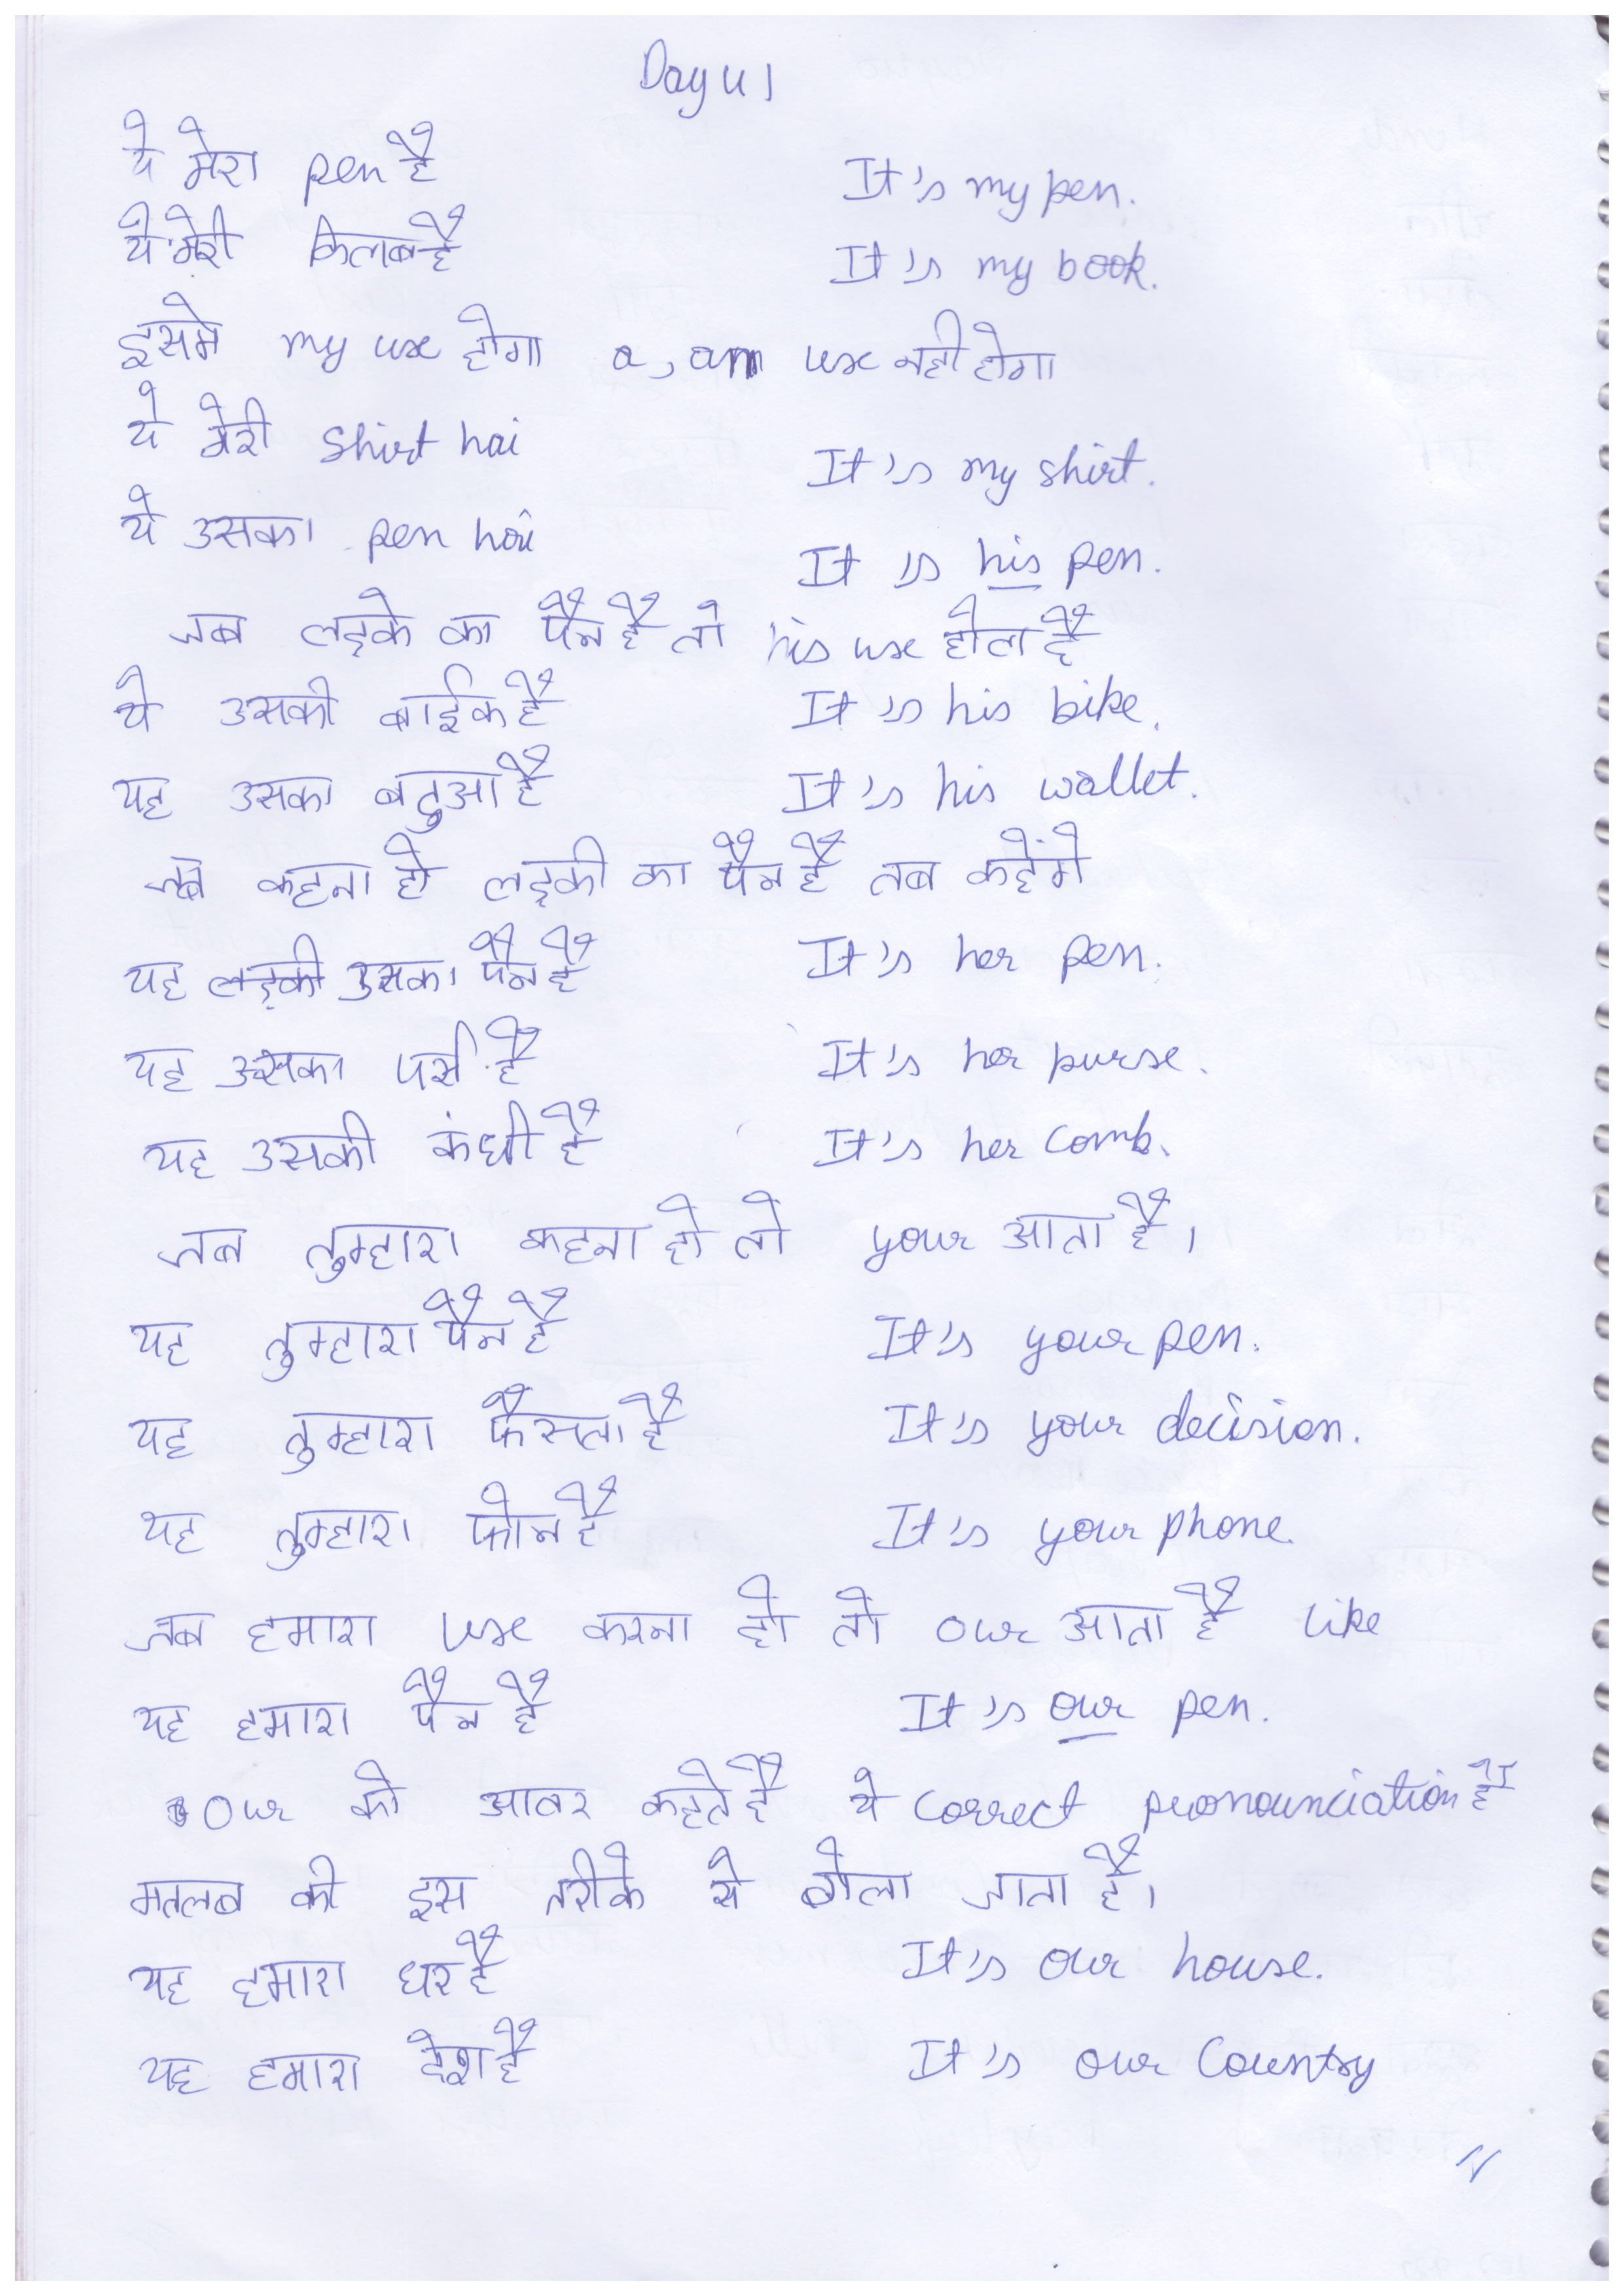 Day 41
ये मेरा pen है It's my pen.
ये मेरी किताब है It's my book.
इसमे my use होगा a, an use नही होगा
ये मेरी shirt hai It's my shirt.
ये उसका pen hai It is his pen.
जब लड़के का पैन है तो his use होता है
ये उसकी बाईक है It's his bike.
यह उसका बटुआ है It's his wallet.
जब कहना हो लड़की का पैन है तब कहेंगे
यह लड़की उसका पैन है It's her pen.
यह उसका पर्स है It's her purse.
यह उसकी कंघी है It's her comb.
जब तुम्हारा कहना हो तो your आता है।
यह तुम्हारा पैन है It's your pen.
यह तुम्हारा फैसला है It's your decision.
यह तुम्हारा फोन है It's your phone.
जब हमारा use करना हो तो our आता है like
यह हमारा पैन है It's our pen.
our को आवर कहते है ये correct pronounciation है
मतलब की इस तरीके से बोला जाता है।
यह हमारा घर है It's our house.
यह हमारा देश है It's our country